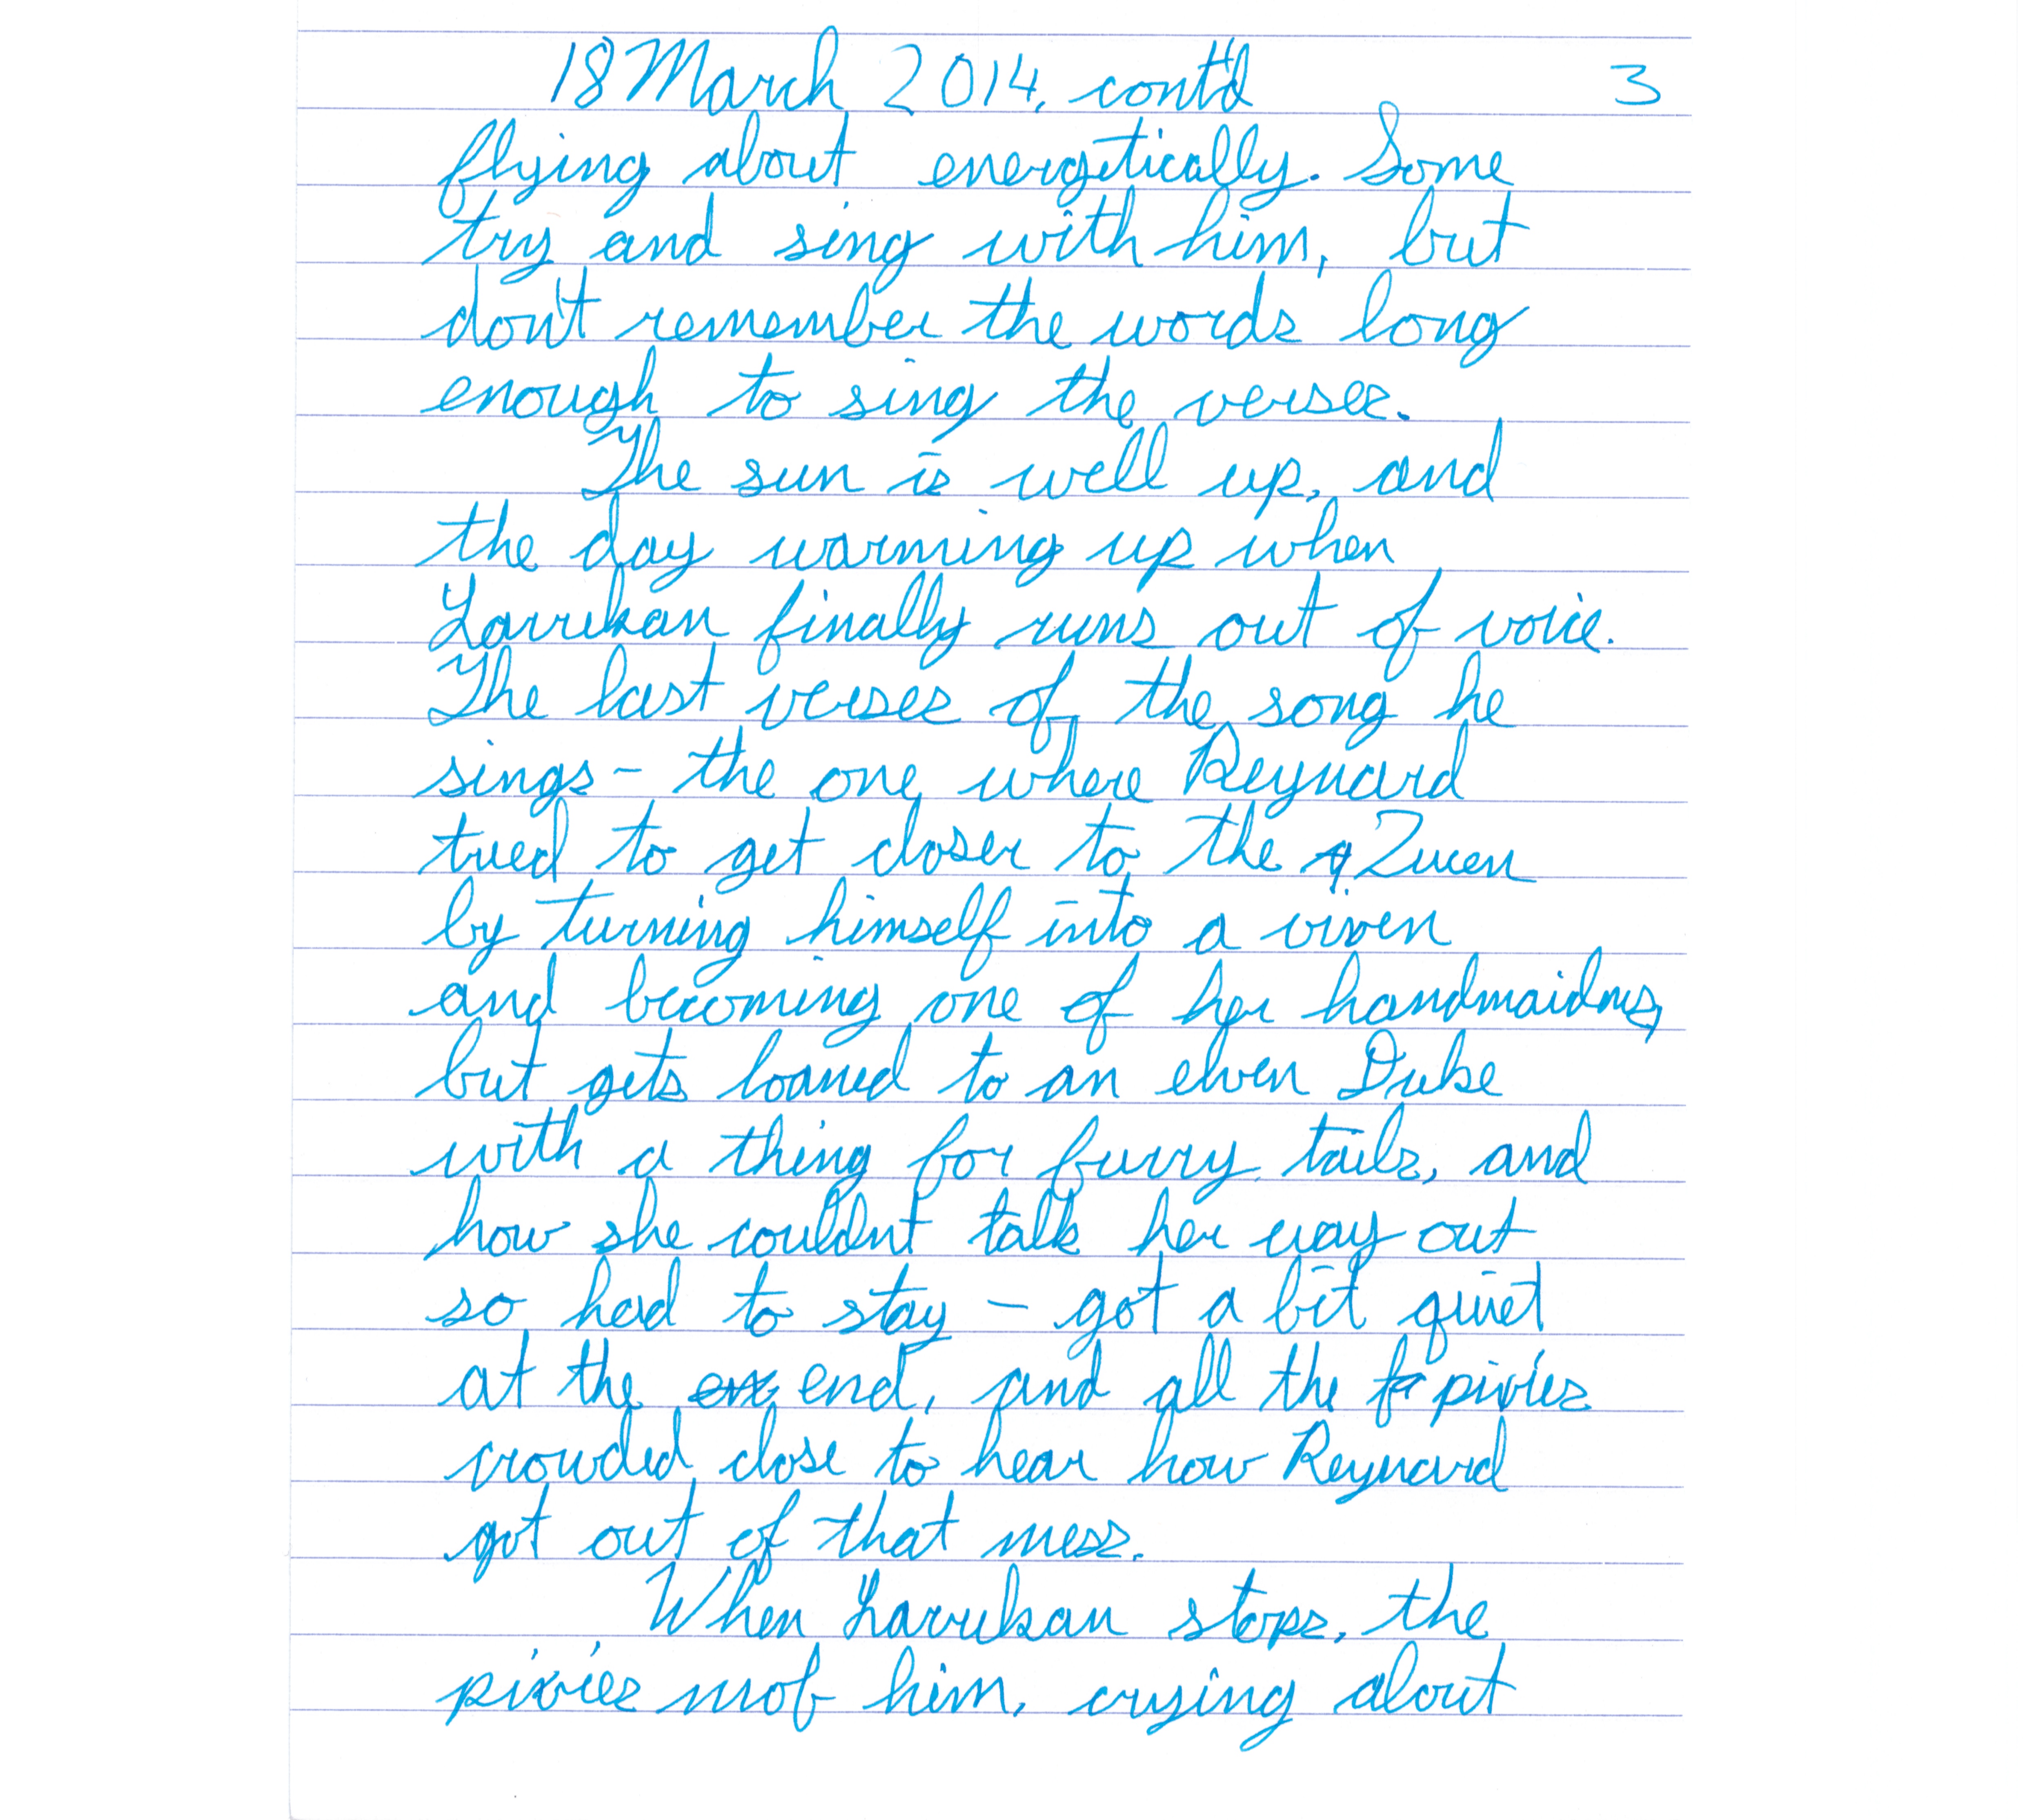 18 March 2014, cont'd 3
flying about energetically. Some
try and sing with him, but
don't remember the words long
enough to sing the verses.
The sun is well up, and
the day warming up when
Larrekan finally runs out of voice.
The last verses of the song he
sings - the one where Reynard
tried to get closer to the Queen
by turning himself into a vixen
and becoming one of her handmaidens,
but gets loaned to an elven Duke
with a thing for furry tails, and
how she couldn't talk her way out
so had to stay - got a bit quiet
at the end, and all the pixies
crowded close to hear how Reynard
got out of that mess.
When Larrekan stops, the
pixies mob him, crying about